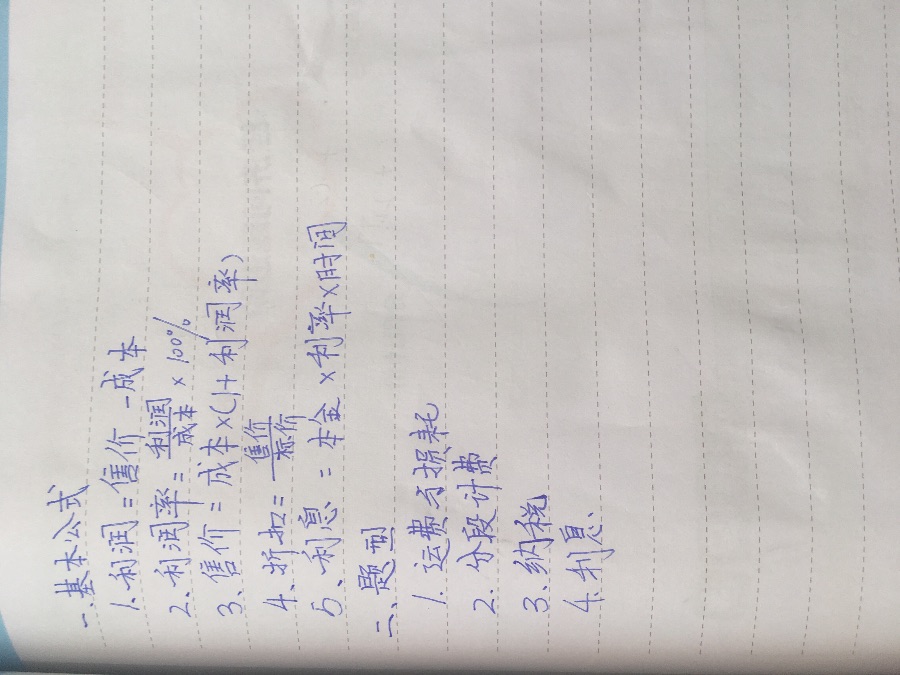 一、基本公式
1、利润=售价-成本
2、利润率=利润/成本×100%
3、售价=成本×(1+利润率)
4、折扣=售价/标价
5、利息=本金×利率×时间
二、题型
1、运费与损耗
2、分段计费
3、纳税
4、利息、